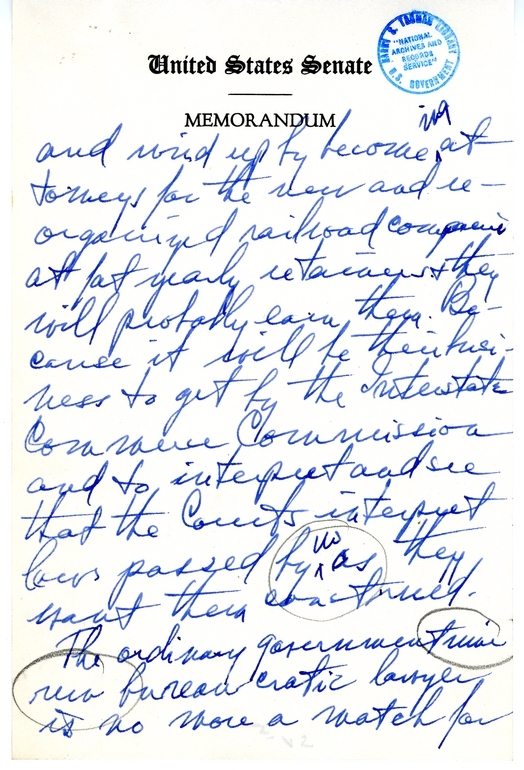 HARRY S. TRUMAN LIBRARY
"NATIONAL
ARCHIVES AND
RECORDS
SERVICE"
U.S. GOVERNMENT
United States Senate
MEMORANDUM
ing
and wind up by become at-
torneys for the new and re-
organized railroad companies
at fat yearly retainers & they
will probably earn them. Be-
cause it will be their busi-
ness to get by the Interstate
Commerce Commission
and to interpret and see
that the Courts interpret
laws passed by us as they
want them construed.
The ordinary government mine
run bureaucratic lawyer
is no more a match for